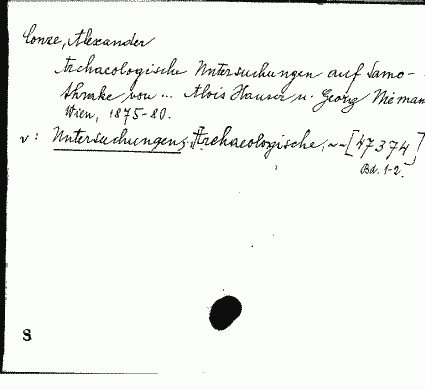 Conze, Alexander
Archaeologische Untersuchungen auf Samo-
thrake von ... Alois Hauser u. Georg Nieman
Wien, 1875-80.
v: Untersuchungen, Archaeologische, ~~[47374]
Bd. 1-2.
S